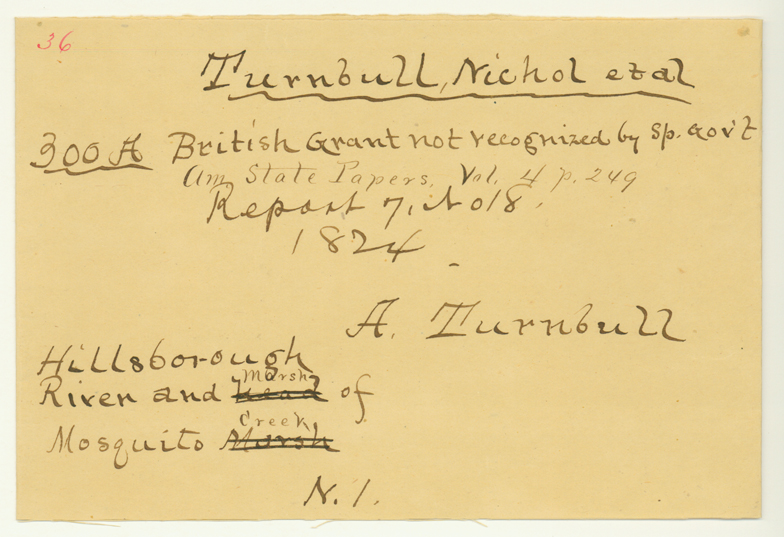 36
Turnbull, Nichol et al
300 A British Grant not recognized by Sp. Gov't
Am State Papers, Vol. 4 p. 249
Report 7, No 18.
1824
A. Turnbull
Hillsborough
Marsh
River and Head of
Creek,
Mosquito Marsh
N. 1.